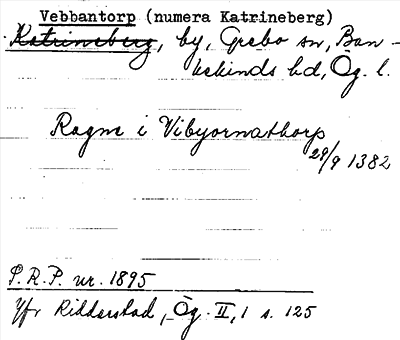 Vebbantorp (numera Katrineberg)
Katrineberg, by, Grebo sn, Ban-
kekinds hd, Ög. l.
Ragne i Vibyornathorp
29/9 1382
S.R.P. nr. 1895
Jfr Ridderstad, Ög. II,1 s. 125